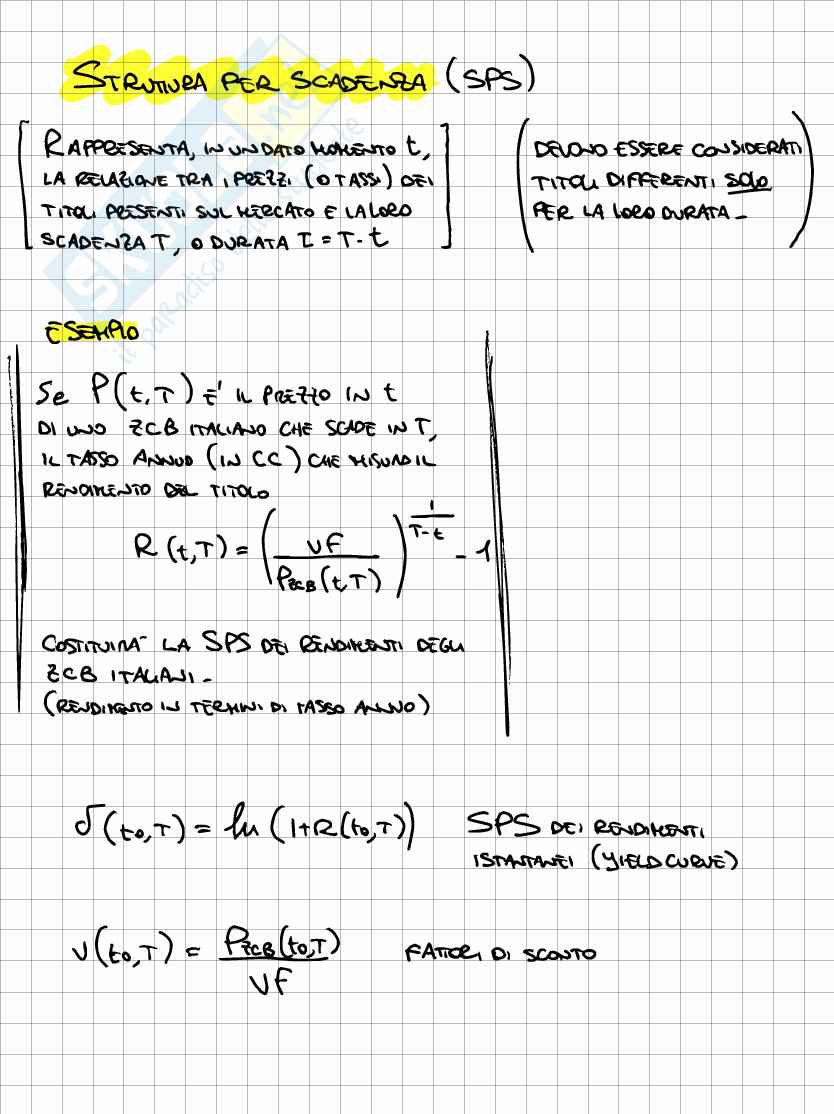 STRUTTURA PER SCADENZA (SPS)
RAPPRESENTA, IN UN DATO MOMENTO t,
LA RELAZIONE TRA I PREZZI (O TASSI) DEI
TITOLI PRESENTI SUL MERCATO E LA LORO
SCADENZA T, O DURATA τ = T - t
DEVONO ESSERE CONSIDERATI
TITOLI DIFFERENTI SOLO
PER LA LORO DURATA -
ESEMPIO
Se P(t,T) E' IL PREZZO IN t
DI UNO ZCB ITALIANO CHE SCADE IN T,
IL TASSO ANNUO (IN CC) CHE MISURA IL
RENDIMENTO DEL TITOLO
R(t,T) = (VF / P_ZCB(t,T))^(1/(T-t)) - 1
COSTITUIRA' LA SPS DEI RENDIMENTI DEGLI
ZCB ITALIANI -
(RENDIMENTO IN TERMINI DI TASSO ANNO)
δ(t0,T) = ln(1+R(t0,T)) SPS DEI RENDIMENTI
ISTANTANEI (YIELD CURVE)
v(t0,T) = P_ZCB(t0,T) / VF FATTORI DI SCONTO